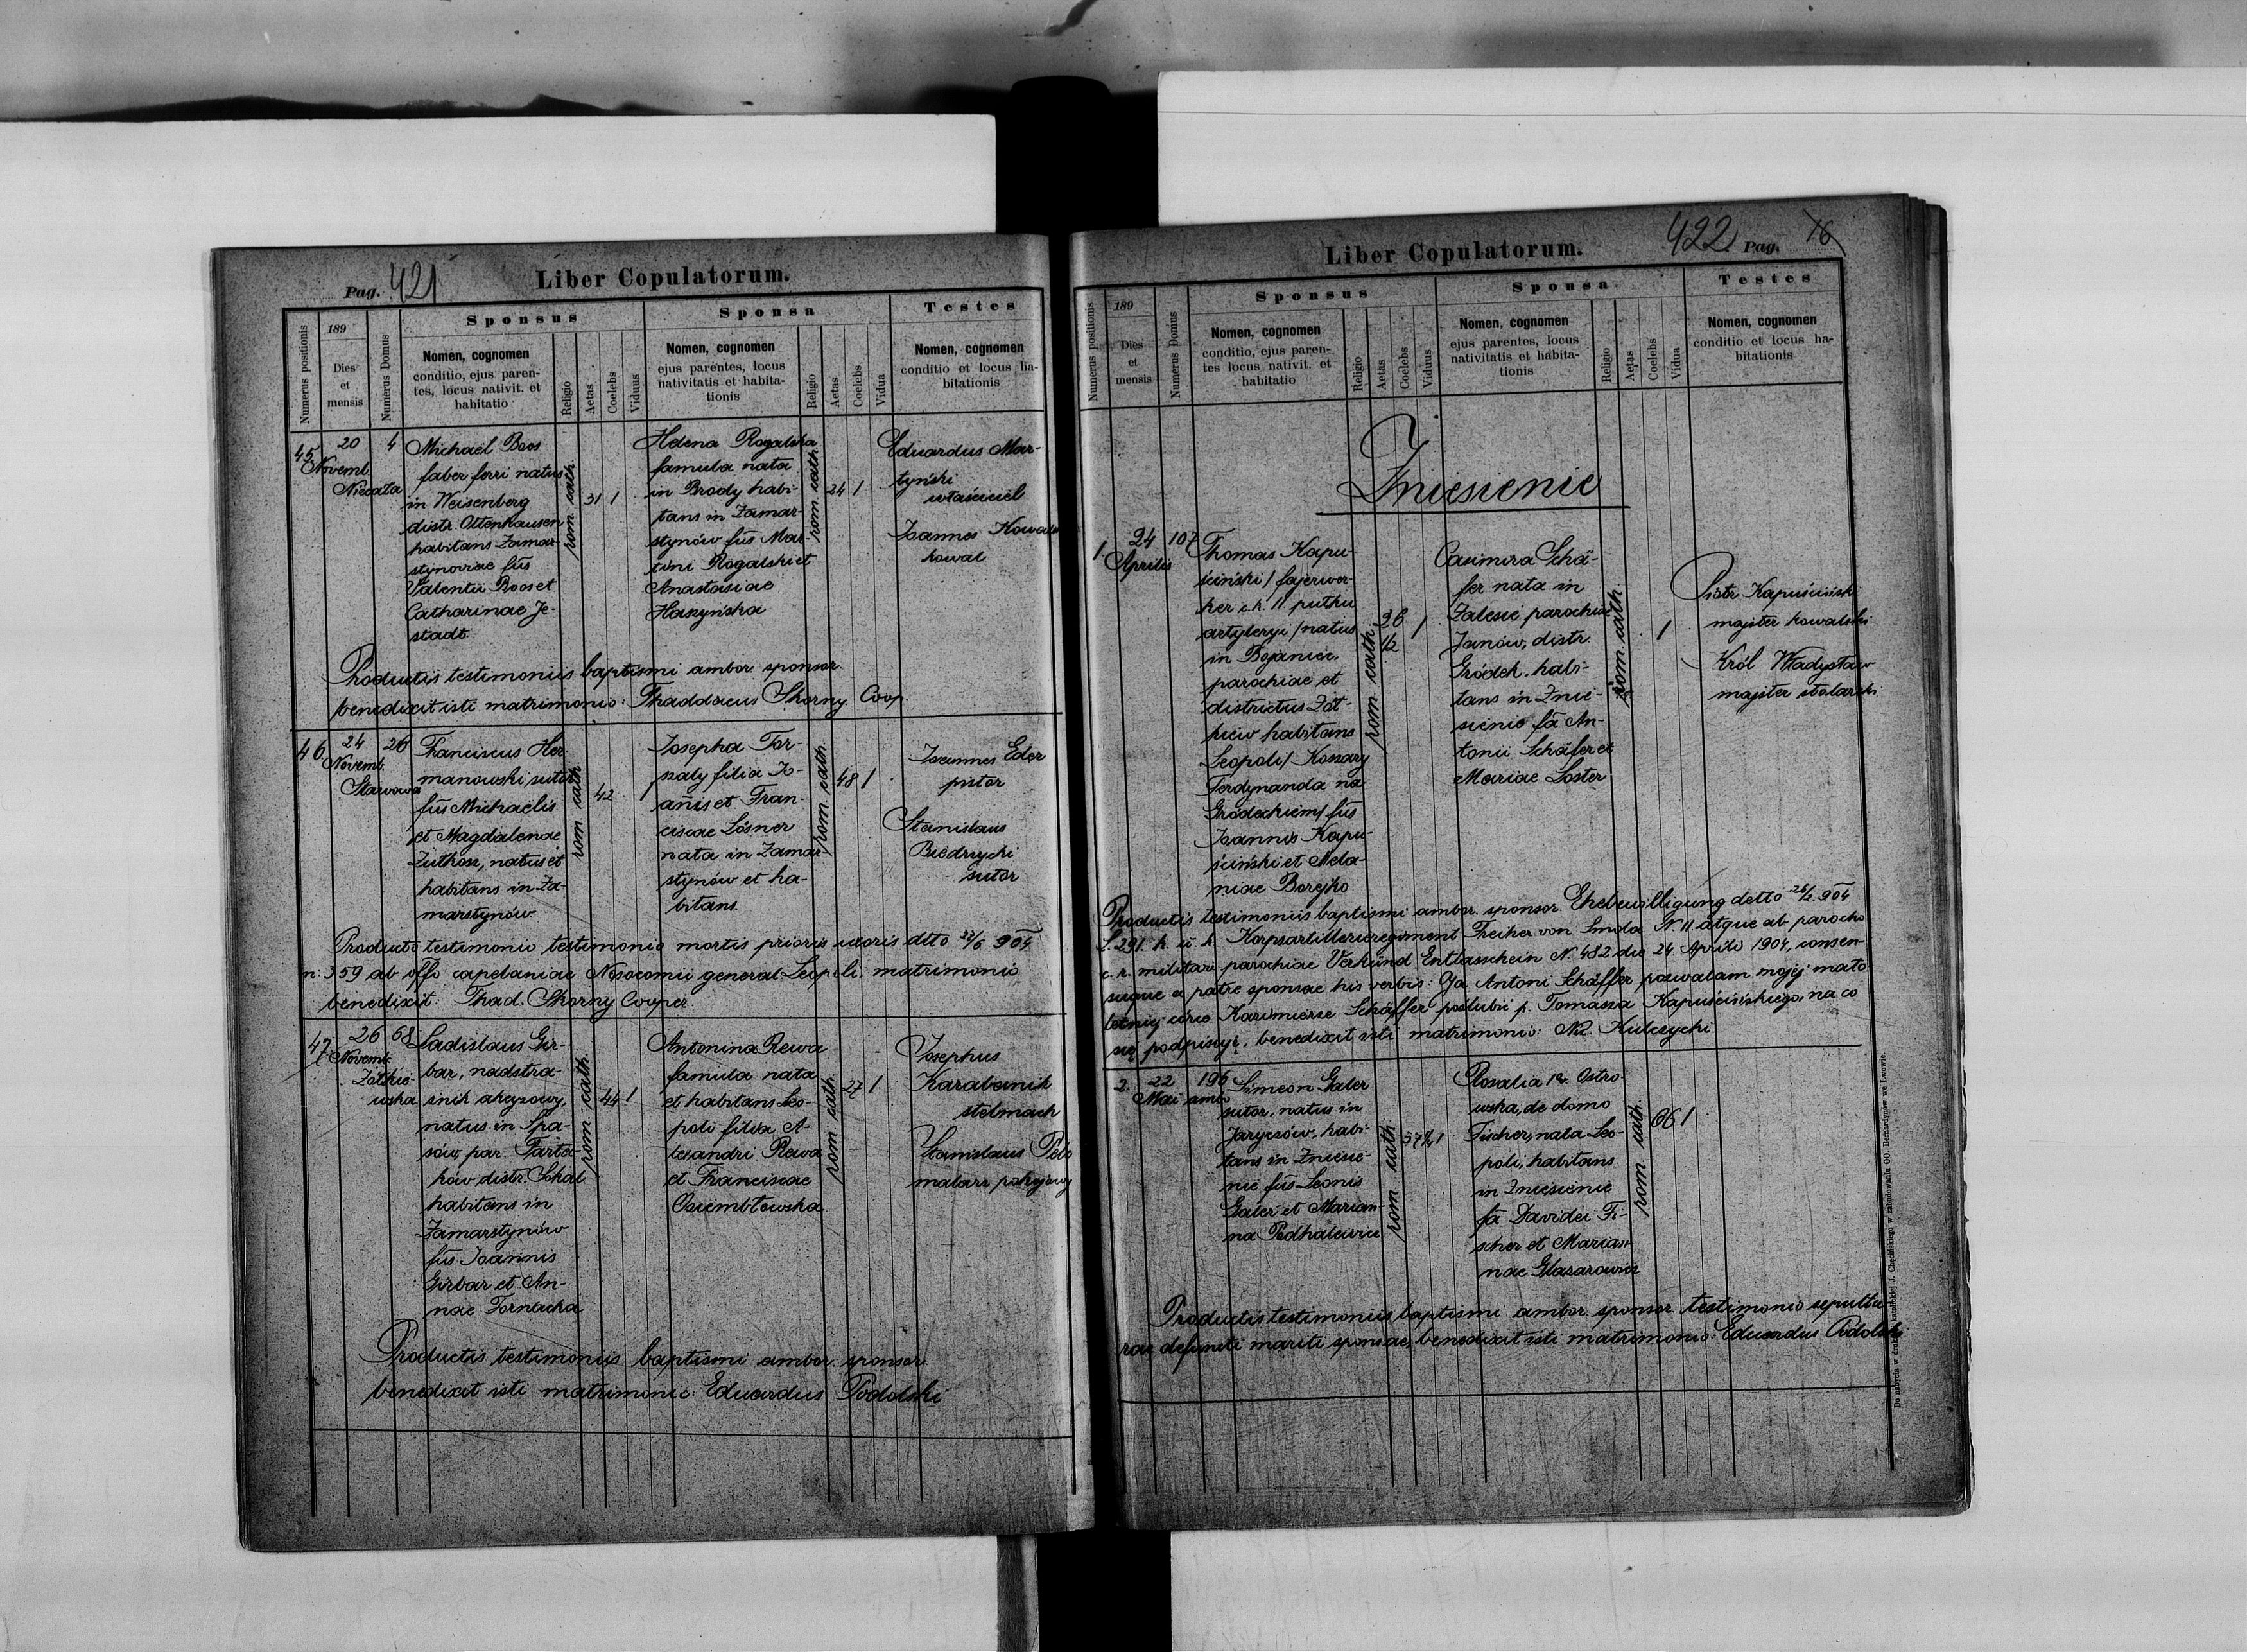 Pag. 421
Liber Copulatorum.
Numerus positionis
189
Dies
et
mensis
Numerus Domus
Sponsus
Nomen, cognomen
conditio, ejus paren-
tes, locus nativit. et
habitatio
Religio
Aetas
Coelebs
Viduus
Sponsa
Nomen, cognomen
ejus parentes, locus
nativitatis et habita-
tionis
Religio
Aetas
Coelebs
Vidua
Testes
Nomen, cognomen
conditio et locus ha-
bitationis
45
20
Novemb.
4
Niecała
Michael Boos
faber ferri natus
in Weisenberg
distr. Ottenhausen
habitans Zamar-
stynoviae fŭs
Valentii Boos et
Catharinae Je-
stadt.
rom. cath.
31
1
Helena Rogalska
famula nata
in Brody habi-
tans in Zamar-
stynów fŭs Mar-
tini Rogalski et
Anastasiae
Haszyńska
rom. cath.
24
1
Eduardus Mar-
tyński
właściciel
Joannes Kowals
kowal
Productis testimoniis baptismi ambor. sponsor.
benedixit isti matrimonio: Thaddaeus Skorny Coop.
46
24
Novemb.
26
Franciscus Her-
manowski, sutor
fŭs Michaelis
et Magdalenae
natus et
habitans in Za-
marstynów
rom. cath.
42
1
Josepha Tor-
szaly filia Jo-
añis et Fran-
ciscae Lösner
nata in Zamar-
stynów et ha-
bitans.
rom. cath.
48
1
Joannes Eder
pistor
Stanislaus
Biedrzycki
sutor
Producto testimonio testimonio mortis prioris uxoris dtto 22/6 904
n: 359 ab offo capelaniae Nosocomii general. Leopoli. matrimonio
benedixit: Thad. Skorny Cooper.
47
26
Novemb.
68
Żółkie-
wska
Ladislaus Gir-
bar, nadstra-
żnik akcyzowy,
natus in Spa-
sów, par. Tarta-
ków distr. Sokal
habitans in
Zamarstynów
fŭs Joannis
Girbar et An-
nae Tornacka
rom. cath.
44
1
Antonina Rewa
famula nata
et habitans Leo-
poli filia A-
lexandri Rewa
et Franciscae
Osiembłowska
rom. cath.
27
1
Josephus
Karabanik
stelmach
Stanislaus
malarz pokojowy
Productis testimoniis baptismi ambor. sponsor.
benedixit isti matrimonio: Eduardus Podolski
Liber Copulatorum.
422 Pag. 16
Numerus positionis
189
Dies
et
mensis
Numerus Domus
Sponsus
Nomen, cognomen
conditio, ejus paren-
tes locus nativit. et
habitatio
Religio
Aetas
Coelebs
Viduus
Sponsa
Nomen, cognomen
ejus parentes, locus
nativitatis et habita-
tionis
Religio
Aetas
Coelebs
Vidua
Testes
Nomen, cognomen
conditio et locus ha-
bitationis
Zniesienie
1.
24
Aprilis
107
Thomas Kapu-
ściński / fajerwer-
ker c.k. 11 pułku
artyleryi / natus
in Bojaniec
parochiae et
districtus Żół-
kiew habitans
Leopoli / Koszary
Ferdynanda na
Gródeckiem / fŭs
Joannis Kapu-
ściński et Mela-
niae Borejko
rom. cath.
26
1
Casimira Schä-
fer nata in
Zalesie parochiae
Janów, distr.
Gródek. habi-
tans in Znie-
sienie fã An-
tonii Schäfer et
Mariae Loster
rom. cath.
1
Piotr Kapuściński
majster kowalski
Król Władysław
majster stolarski
Productis testimoniis baptismi ambor. sponsor. Ehebewilligung detto 26/2. 904
L. 291. k. u. k. Korpsartillerieregiment Freiher von Smola N. 11 atque ab parocho
c. r. militari parochiae Verkünd Entlasschein N. 482 die 24 Aprilis 1904, consen-
suque a patre sponsae his verbis: Ja Antoni Schäffer pozwalam mojej mało
letniej córce Kazimierze Schäffer poślubić p. Tomasza Kapuścińskiego, na co
się podpisuję, benedixit isti matrimonio: Kulczycki
2.
22
Mai
196
ambo
Simeon Galer
sutor, natus in
Jaryczów, habi-
tans in Zniesie-
nie fŭs Leonis
Galer et Marian-
na Podhalewicz
rom. cath.
1
Rosalia 1v. Ostro-
wska, de domo
Fischer, nata Leo-
poli, habitans
in Zniesienie
fã Davidei Fi-
scher et Marian-
nae Glasarowicz
rom. cath.
66
1
Productis testimoniis baptismi ambor. sponsor. testimonio sepultu-
rae defuncti mariti sponsae, benedixit isti matrimonio: Eduardus Podolski
Do nabycia w drukarni katolickiej J. Chęcińskiego w zabudowaniu OO. Bernardynów we Lwowie.